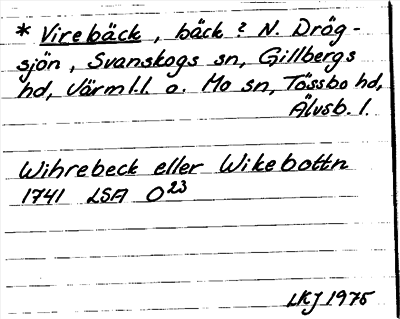 * Virebäck, bäck? N. Dräg-
sjön, Svanskogs sn, Gillbergs
hd, Värml.l. o. Mo sn, Tössbo hd,
Älvsb. l.
Wihrebeck eller Wikebottn
1741 LSA O23
LKJ 1975